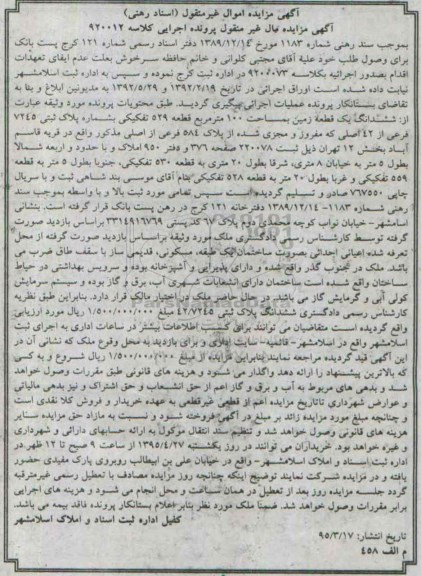 آگهی مزایده اموال غیرمنقول (اسناد رهنی)
آگهی مزایده مال غیر منقول پرونده اجرایی کلاسه ۹۲۰۰۱۲
بموجب سند رهنی شماره ۱۱۸۳ مورخ ۱۳۸۹/۱۲/۱۴ دفتر اسناد رسمی شماره ۱۲۱ کرج پست بانک
برای وصول طلب خود علیه آقای مجتبی کلوانی و خانم حافظه سرخوش بعلت عدم ایفای تعهدات
اقدام بصدور اجرائیه بکلاسه ۹۲۰۰۰۷۳ در اداره ثبت کرج نموده و سپس به اداره ثبت اسلامشهر
نیابت داده شده است اوراق اجرائی در تاریخ ۱۳۹۲/۲/۱۹ و ۱۳۹۲/۵/۲۹ به مدیونین ابلاغ و بنا به
تقاضای بستانکار پرونده عملیات اجرائی پیگیری گردید. طبق محتویات پرونده مورد وثیقه عبارت
از: ششدانگ یک قطعه زمین بمساحت ۱۰۰ مترمربع قطعه ۵۲۹ تفکیکی بشماره پلاک ثبتی ۷۲۴۵
فرعی از ۴۲ اصلی که مفروز و مجزی شده از پلاک ۵۸۴ فرعی از اصلی مذکور واقع در قریه قاسم
آباد بخش ۱۲ تهران ذیل ثبت ۲۲۰۰۷۸ صفحه ۳۷۶ دفتر ۹۵۰ املاک و با حدود و اربعه شمالا
بطول ۵ متر به خیابان ۸ متری، شرقا بطول ۲۰ متری به قطعه ۵۳۰ تفکیکی، جنوبا بطول ۵ متر به قطعه
۵۵۹ تفکیکی و غربا بطول ۲۰ متر به قطعه ۵۲۸ تفکیکی بنام آقای موسی بند شاهی ثبت و با سریال
چاپی ۷۶۷۵۵۰ صادر و تسلیم گردیده است سپس تمامی مورد ثبت بالا و با واسطه بموجب سند
رهنی شماره ۱۱۸۳-۱۳۸۹/۱۲/۱۴ دفترخانه ۱۲۱ کرج در رهن پست بانک قرار گرفته است. بنشانی
اسلامشهر- خیابان نواب کوچه محمدی دوم پلاک ۶۷ کدپستی ۳۳۱۴۹۱۶۷۶۹ براساس بازدید صورت
گرفته توسط کارشناس رسمی دادگستری ملک مورد وثیقه براساس بازدید صورت گرفته از محل
تعرفه شده اعیانی احداثی بصورت ساختمان یک طبقه، مسکونی، قدیمی ساز با سقف طاق ضربی می
باشد. ملک در جنوب گذر واقع شده و دارای پذیرایی و آشپزخانه بوده و سرویس بهداشتی در حیاط
ساختان واقع شده است ساختمان دارای انشعابات شهری آب، برق و گاز بوده و سیستم سرمایش
کولی آبی و گرمایش گاز می باشد. در حال حاضر ملک در اختیار مالک قرار دارد. بنابراین طبق نظریه
کارشناس رسمی دادگستری ششدانگ پلاک ثبتی ۴۲/۷۲۴۵ مبلغ ۱/۵۰۰/۰۰۰/۰۰۰ ریال مورد ارزیابی
واقع گردیده است متقاضیان می توانند برای کسب اطلاعات بیشتر در ساعات اداری به اجرای ثبت
اسلامشهر واقع در اسلامشهر- قائمیه- سایت اداری و برای بازدید به محل وقوع ملک که نشانی آن در
این آگهی قید گردیده مراجعه نمایند بنابراین مزایده از مبلغ ۱/۵۰۰/۰۰۰/۰۰۰ ریال شروع و به کسی
که بالاترین پیشنهاد را ارائه دهد واگذار می شود و هزینه های قانونی طبق مقررات وصول خواهد
شد و بدهی های مربوط به آب و برق و گاز اعم از حق انشعاب و حق اشتراک و نیز بدهی مالیاتی
و عوارض شهرداری تاتاریخ مزایده اعم از قطعی غیرقطعی به عهده خریدار و فروش کلا نقدی است
و چنانچه مبلغ مورد مزایده زائد بر مبلغ در آگهی فروخته شود و نسبت به مازاد حق مزایده سایر
هزینه های قانونی وصول خواهد شد و تنظیم سند انتقال موکول به ارائه حسابهای دارائی و شهرداری
و غیره خواهد بود. خریداران می توانند در روز یکشنبه ۱۳۹۵/۴/۲۷ از ساعت ۹ صبح تا ۱۲ ظهر در
اداره ثبت اسناد و املاک اسلامشهر- واقع در خیابان علی بن ابیطالب روبروی پارک مفیدی حضور
یافته و در مزایده شرکت نمایند توضیح اینکه چنانچه روز مزایده مصادف با تعطیل رسمی غیرمترقبه
گردد جلسه مزایده روز بعد از تعطیل در همان ساعت و محل انجام می شود و هزینه های اجرایی
برابر مقررات وصول خواهد شد. ضمنا ملک مورد نظر بنابر اعلام بستانکار پرونده فاقد بیمه می باشد.
کفیل اداره ثبت اسناد و املاک اسلامشهر
تاریخ انتشار: ۹۵/۳/۱۷
م الف ۴۵۸